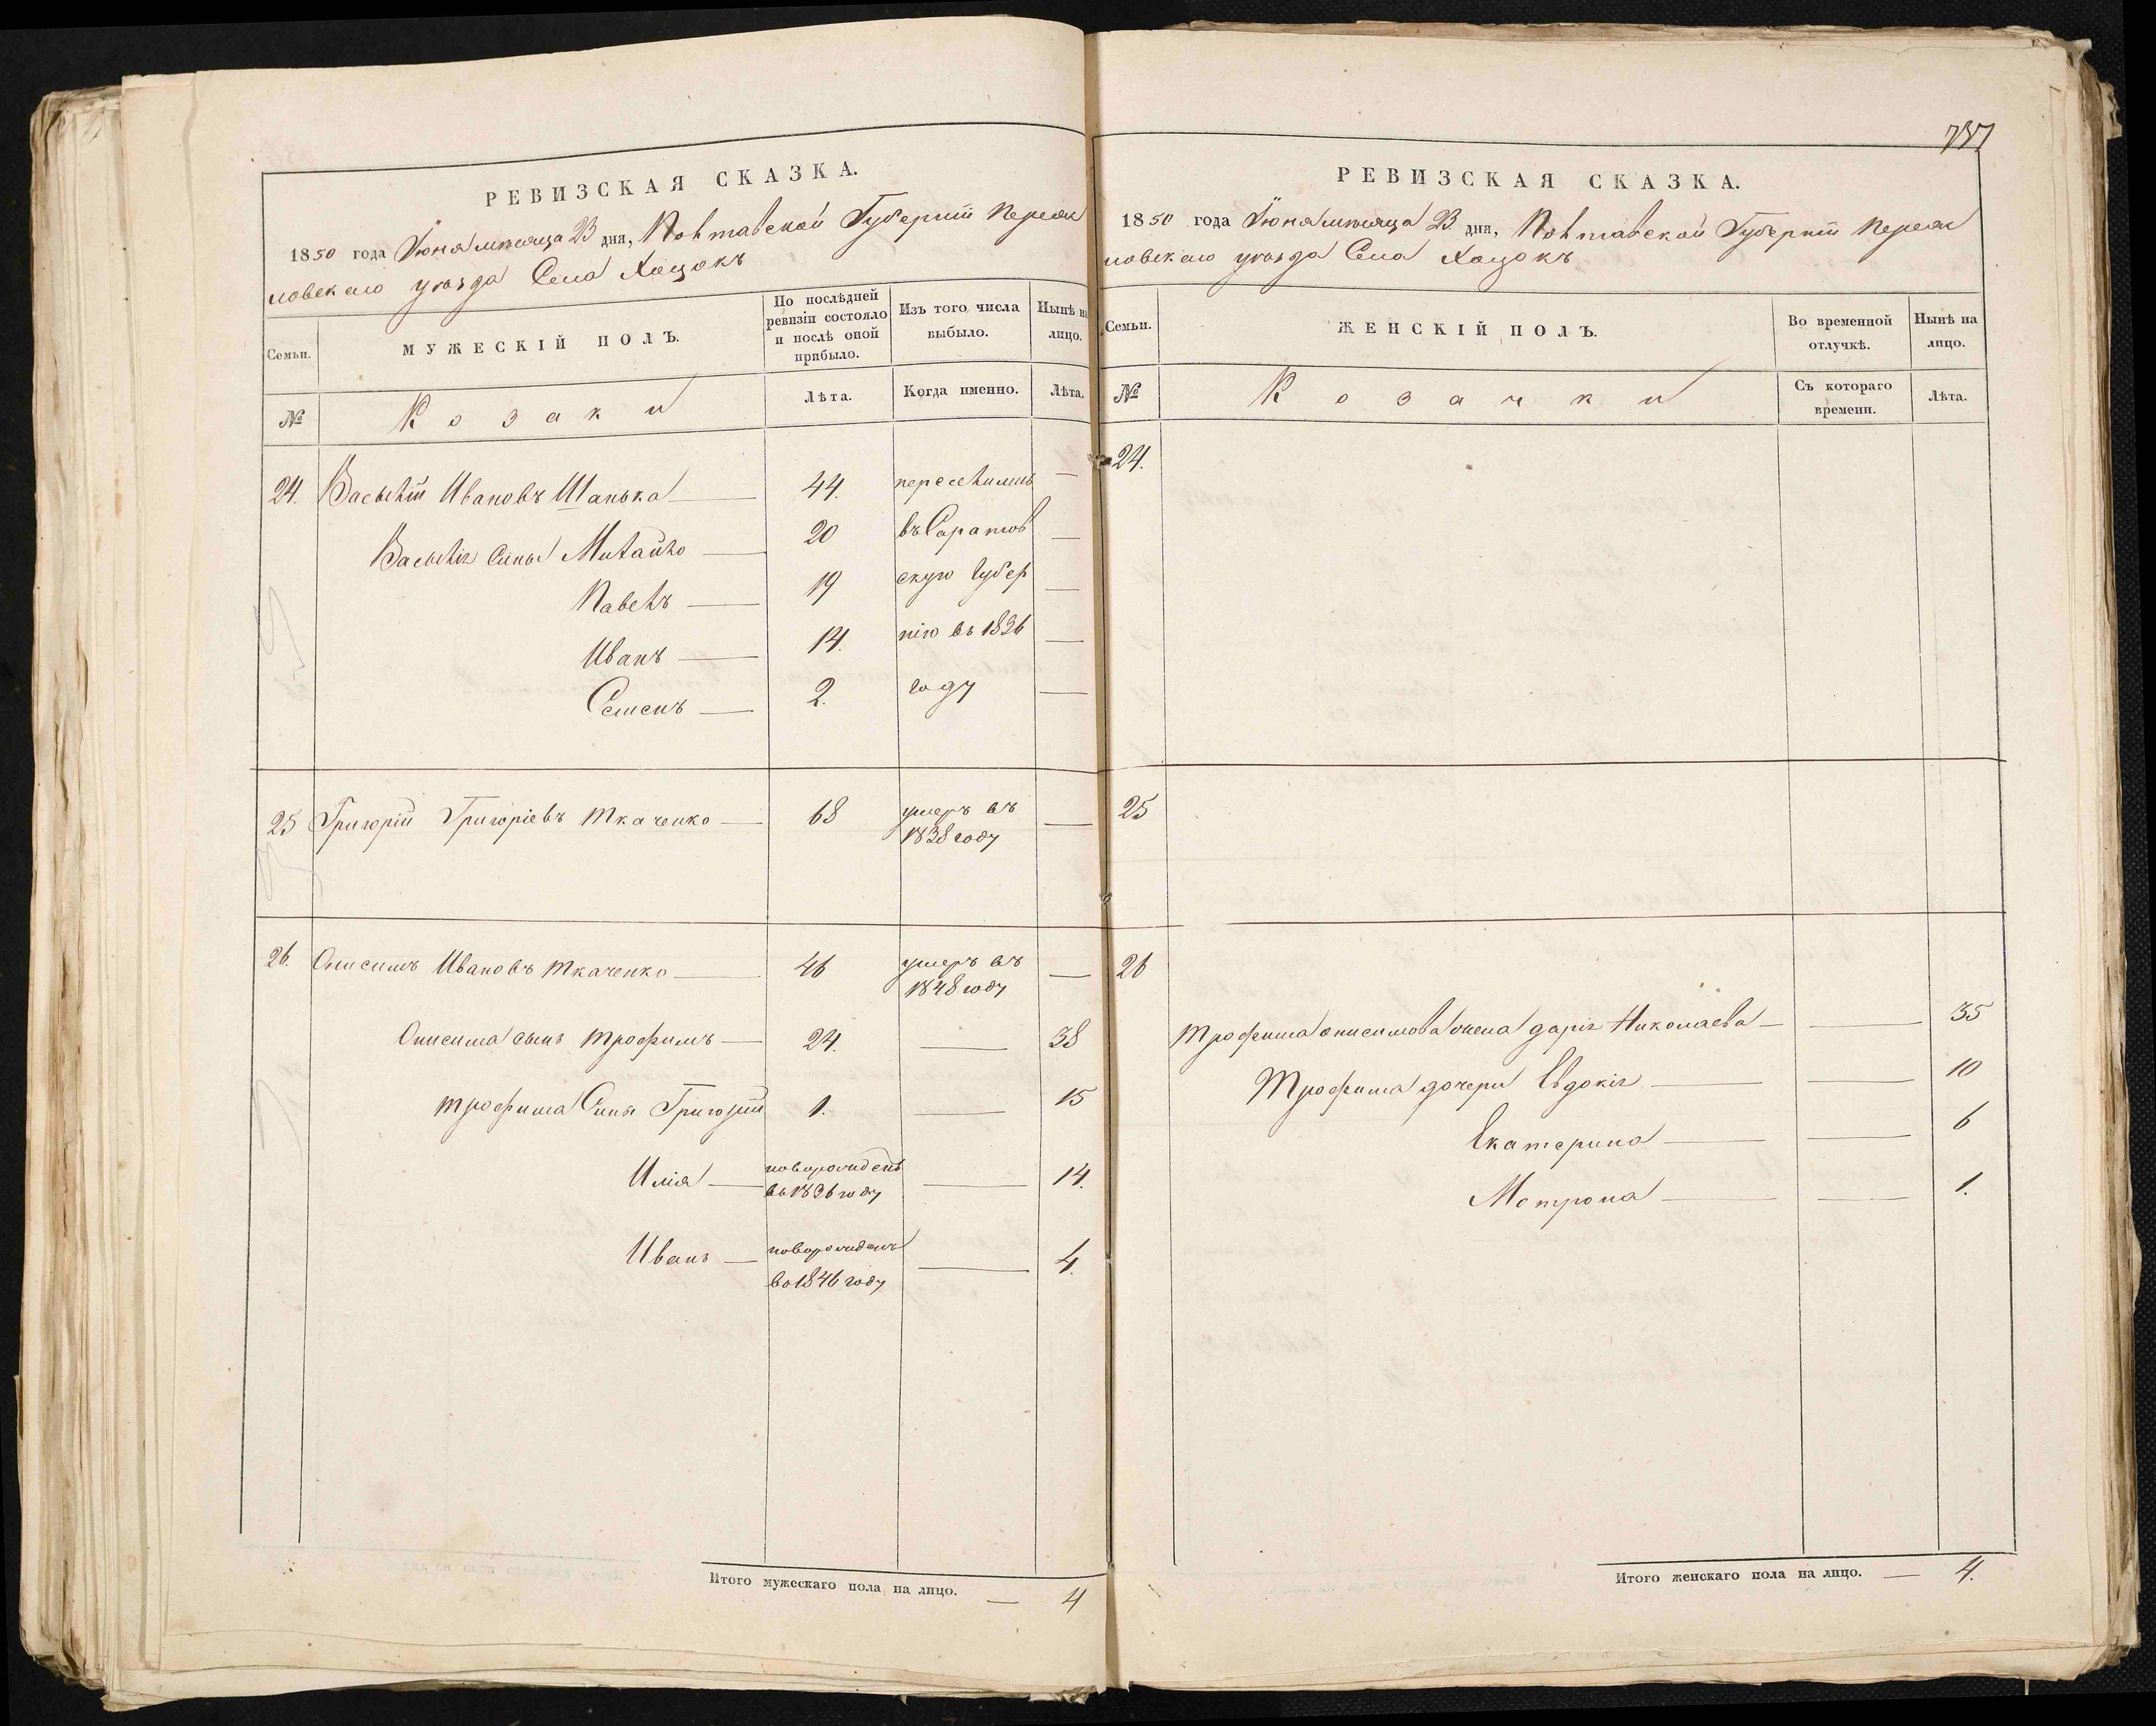 737
РЕВИЗСКАЯ СКАЗКА.
1850 года Іюня мѣсяца 23 дня, Полтавской Губерніи Переяс
ловскаго уѣзда Села Хоцокъ
Семьи.
МУЖЕСКІЙ ПОЛЪ.
По послѣдней ревизіи состояло и послѣ оной прибыло.
Изъ того числа выбыло.
Нынѣ на лицо.
№
Козаки
Лѣта.
Когда именно.
Лѣта.
24. Василій Ивановъ Шапька — 44. переселились —
Василія Сины Михайло — 20 въ Саратов —
Павелъ — 19 скую Губер —
Иванъ — 14. нію въ 1836 —
Семенъ — 2. году —
25 Григорій Григоріевъ Ткаченко — 68 умеръ въ —
1838 году
26. Онисимъ Ивановъ Ткаченко — 46 умеръ въ —
1848 году
Онисима сынъ Трофимъ — 24. — 38
Трофима Сины Григорій 1. — 15
Илія — новорожденъ — 14.
въ 1836 году
Иванъ — новорожденъ — 4.
въ 1846 году
Итого мужескаго пола на лицо. — 4
РЕВИЗСКАЯ СКАЗКА.
1850 года Іюня мѣсяца 23 дня, Полтавской Губерніи Переяс
ловскаго уѣзда Села Хоцокъ
Семьи.
ЖЕНСКІЙ ПОЛЪ.
Во временной отлучкѣ.
Нынѣ на лицо.
№
Козачки
Съ котораго времени.
Лѣта.
24.
25
26
Трофима Онисимова жена Дарія Николаева — — 35
Трофима дочери Евдокія — — 10
Екатерина — — 6
Мотрона — — 1.
Итого женскаго пола на лицо. — 4.